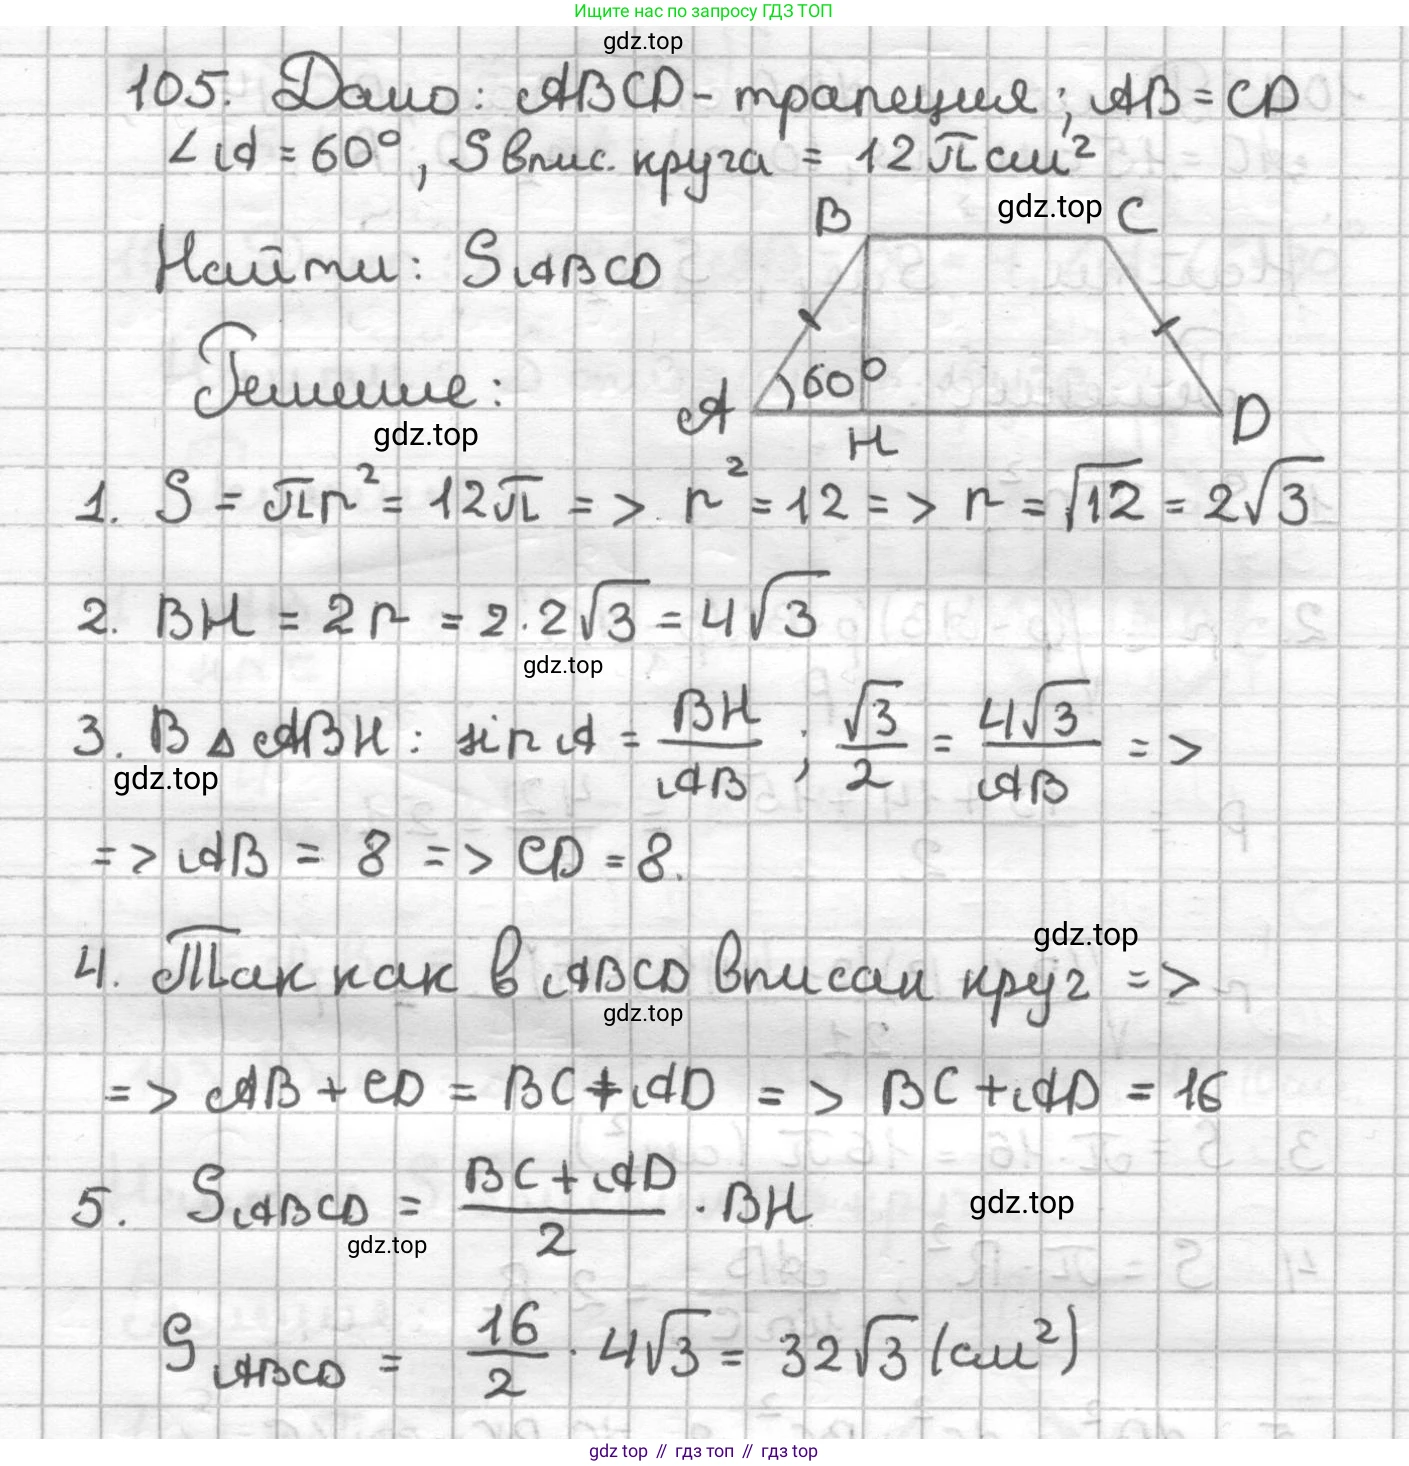 Ищите нас по запросу ГДЗ ТОП
gdz.top
105. Дано: ABCD - трапеция; AB = CD
∠A = 60°, S впис. круга = 12π см²
B gdz.top C
Найти: S ABCD
60°
Решение:
A H D
gdz.top
1. S = πr² = 12π => r² = 12 => r = √12 = 2√3
2. BH = 2r = 2·2√3 = 4√3
gdz.top
3. В △ABH: sin A = BH/AB ; √3/2 = 4√3/AB =>
gdz.top
=> AB = 8 => CD = 8.
gdz.top
4. Так как в ABCD вписан круг =>
gdz.top
=> AB + CD = BC + AD => BC + AD = 16
5. S ABCD = (BC + AD)/2 · BH
gdz.top
gdz.top
S ABCD = 16/2 · 4√3 = 32√3 (см²)
gdz top // гдз топ // гдз top